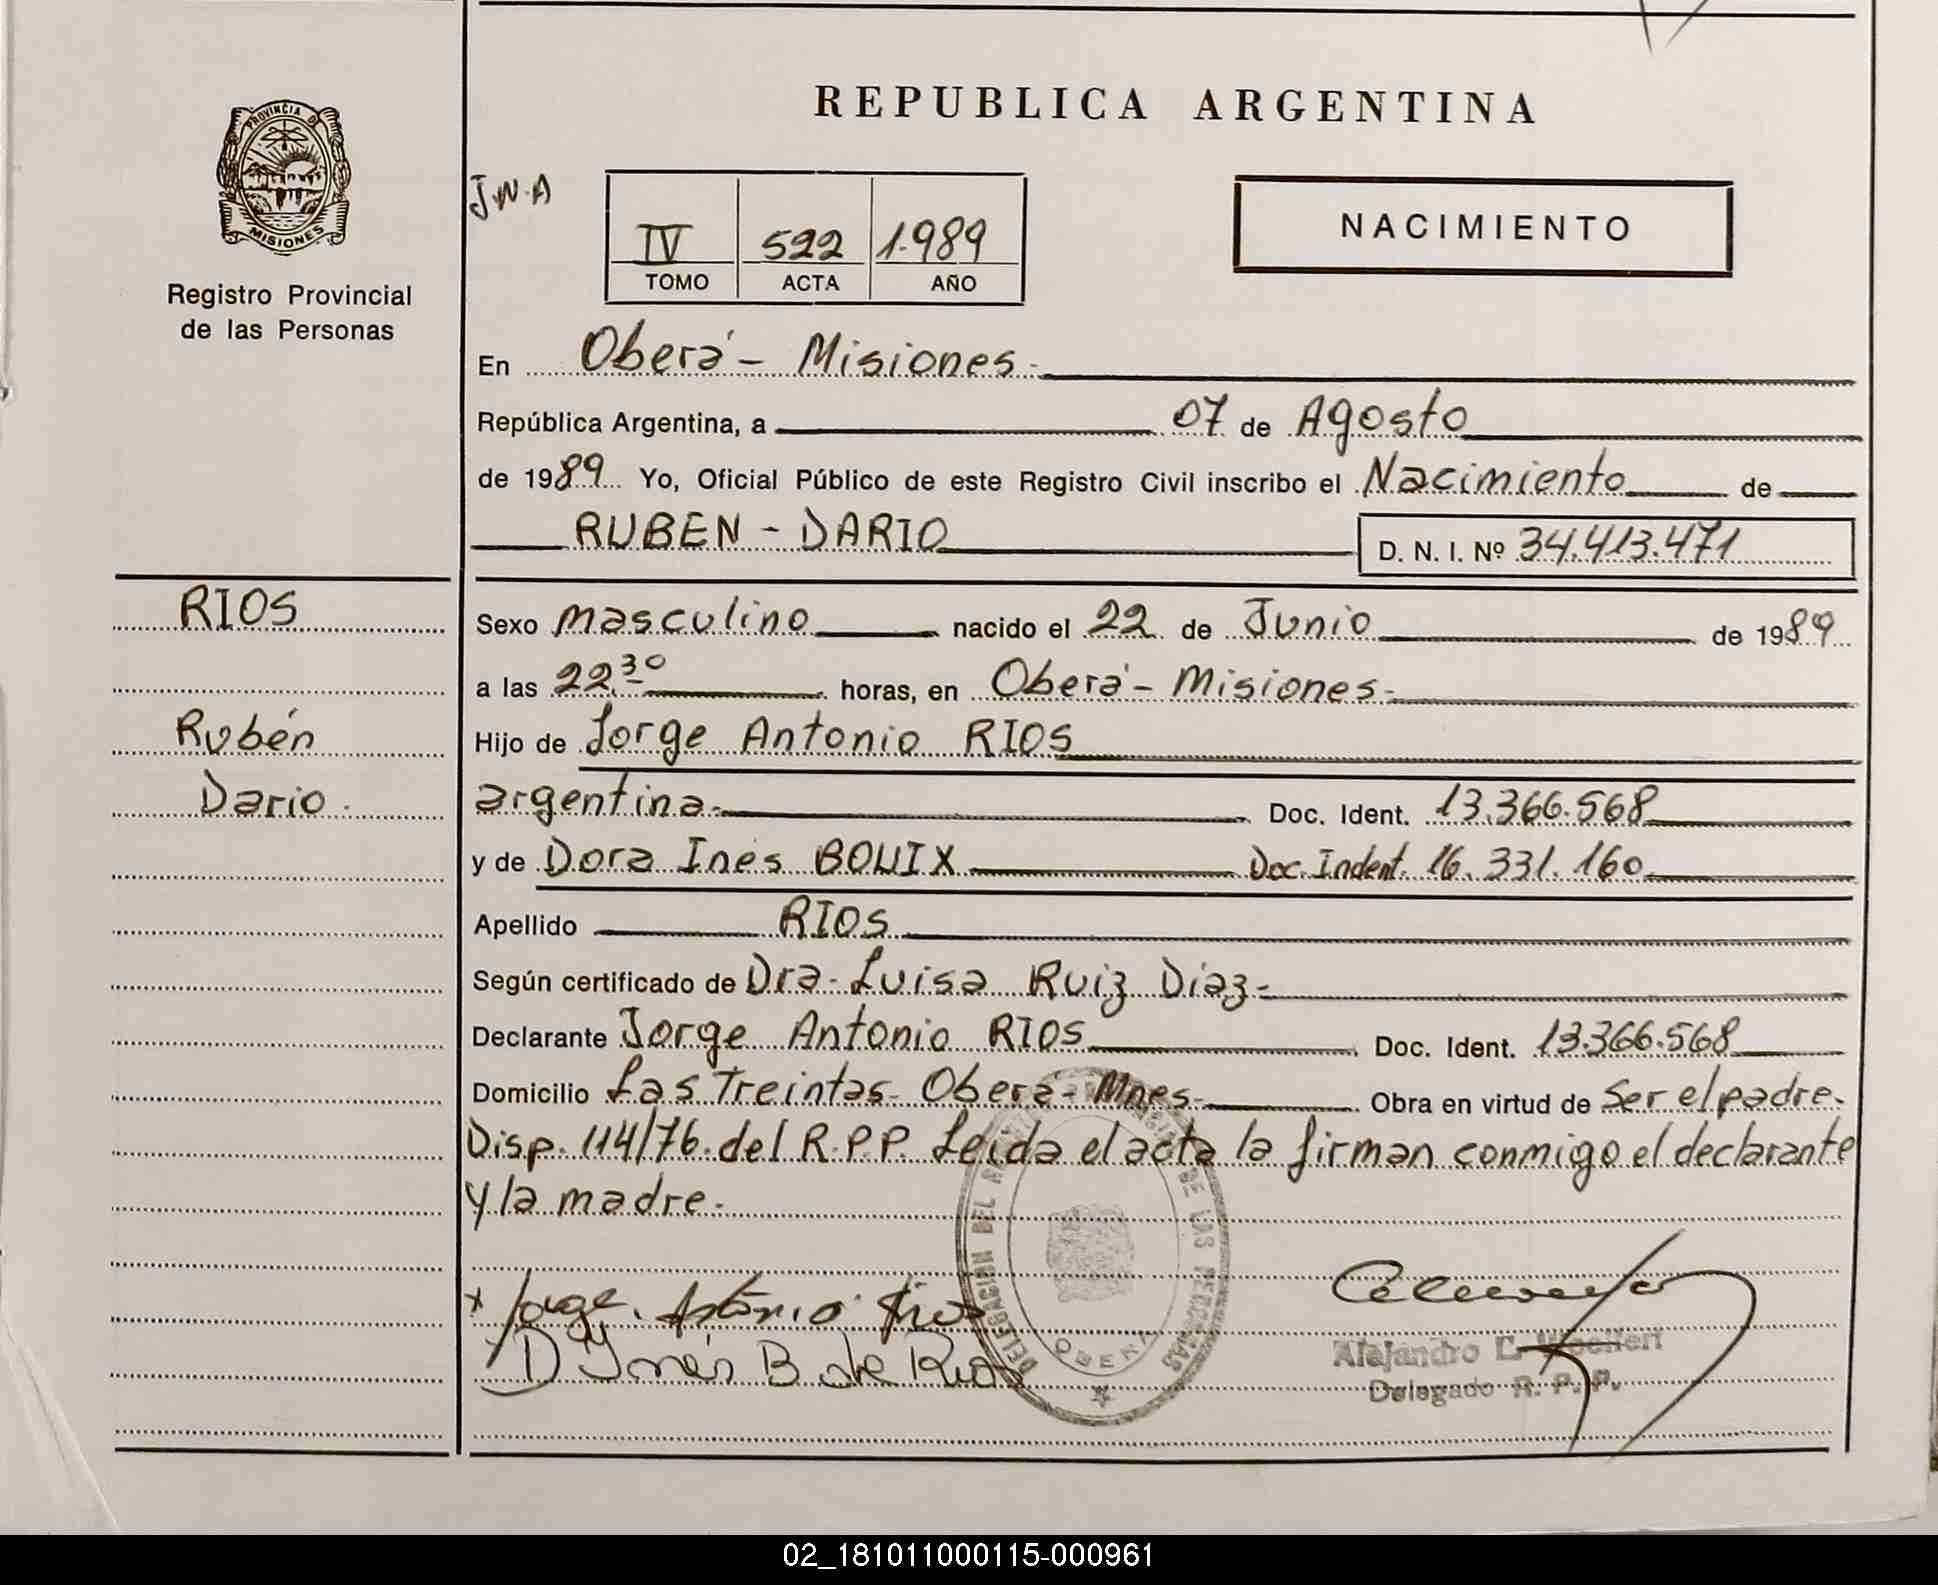 REPUBLICA ARGENTINA
PROVINCIA D
MISIONES
Registro Provincial
de las Personas
J.W.A
IV 522 1.989
TOMO ACTA AÑO
NACIMIENTO
En Oberá - Misiones.-
República Argentina, a 07 de Agosto
de 1989 Yo, Oficial Público de este Registro Civil inscribo el Nacimiento de
RUBEN - DARIO D. N. I. Nº 34.413.471
RIOS
Rubén
Dario.
Sexo masculino nacido el 22 de Junio de 1989
a las 22,30 horas, en Oberá - Misiones.-
Hijo de Jorge Antonio RIOS
argentina.- Doc. Ident. 13.366.568
y de Dora Inés BOWIX Doc. Indent. 16.331.160
Apellido RIOS
Según certificado de Dra. Luisa Ruiz Diaz-
Declarante Jorge Antonio RIOS Doc. Ident. 13.366.568
Domicilio Las Treintas- Oberá- Mnes- Obra en virtud de Ser el padre.
Disp. 114/76. del R.P.P. Leida el acta la firman conmigo el declarante
y la madre.
x Jorge Antonio Rios
D Inés B de Rios
DELEGACION DEL DE LAS PERSONAS
OBERA
Alejandro
Delegado R. P. P.
02_181011000115-000961